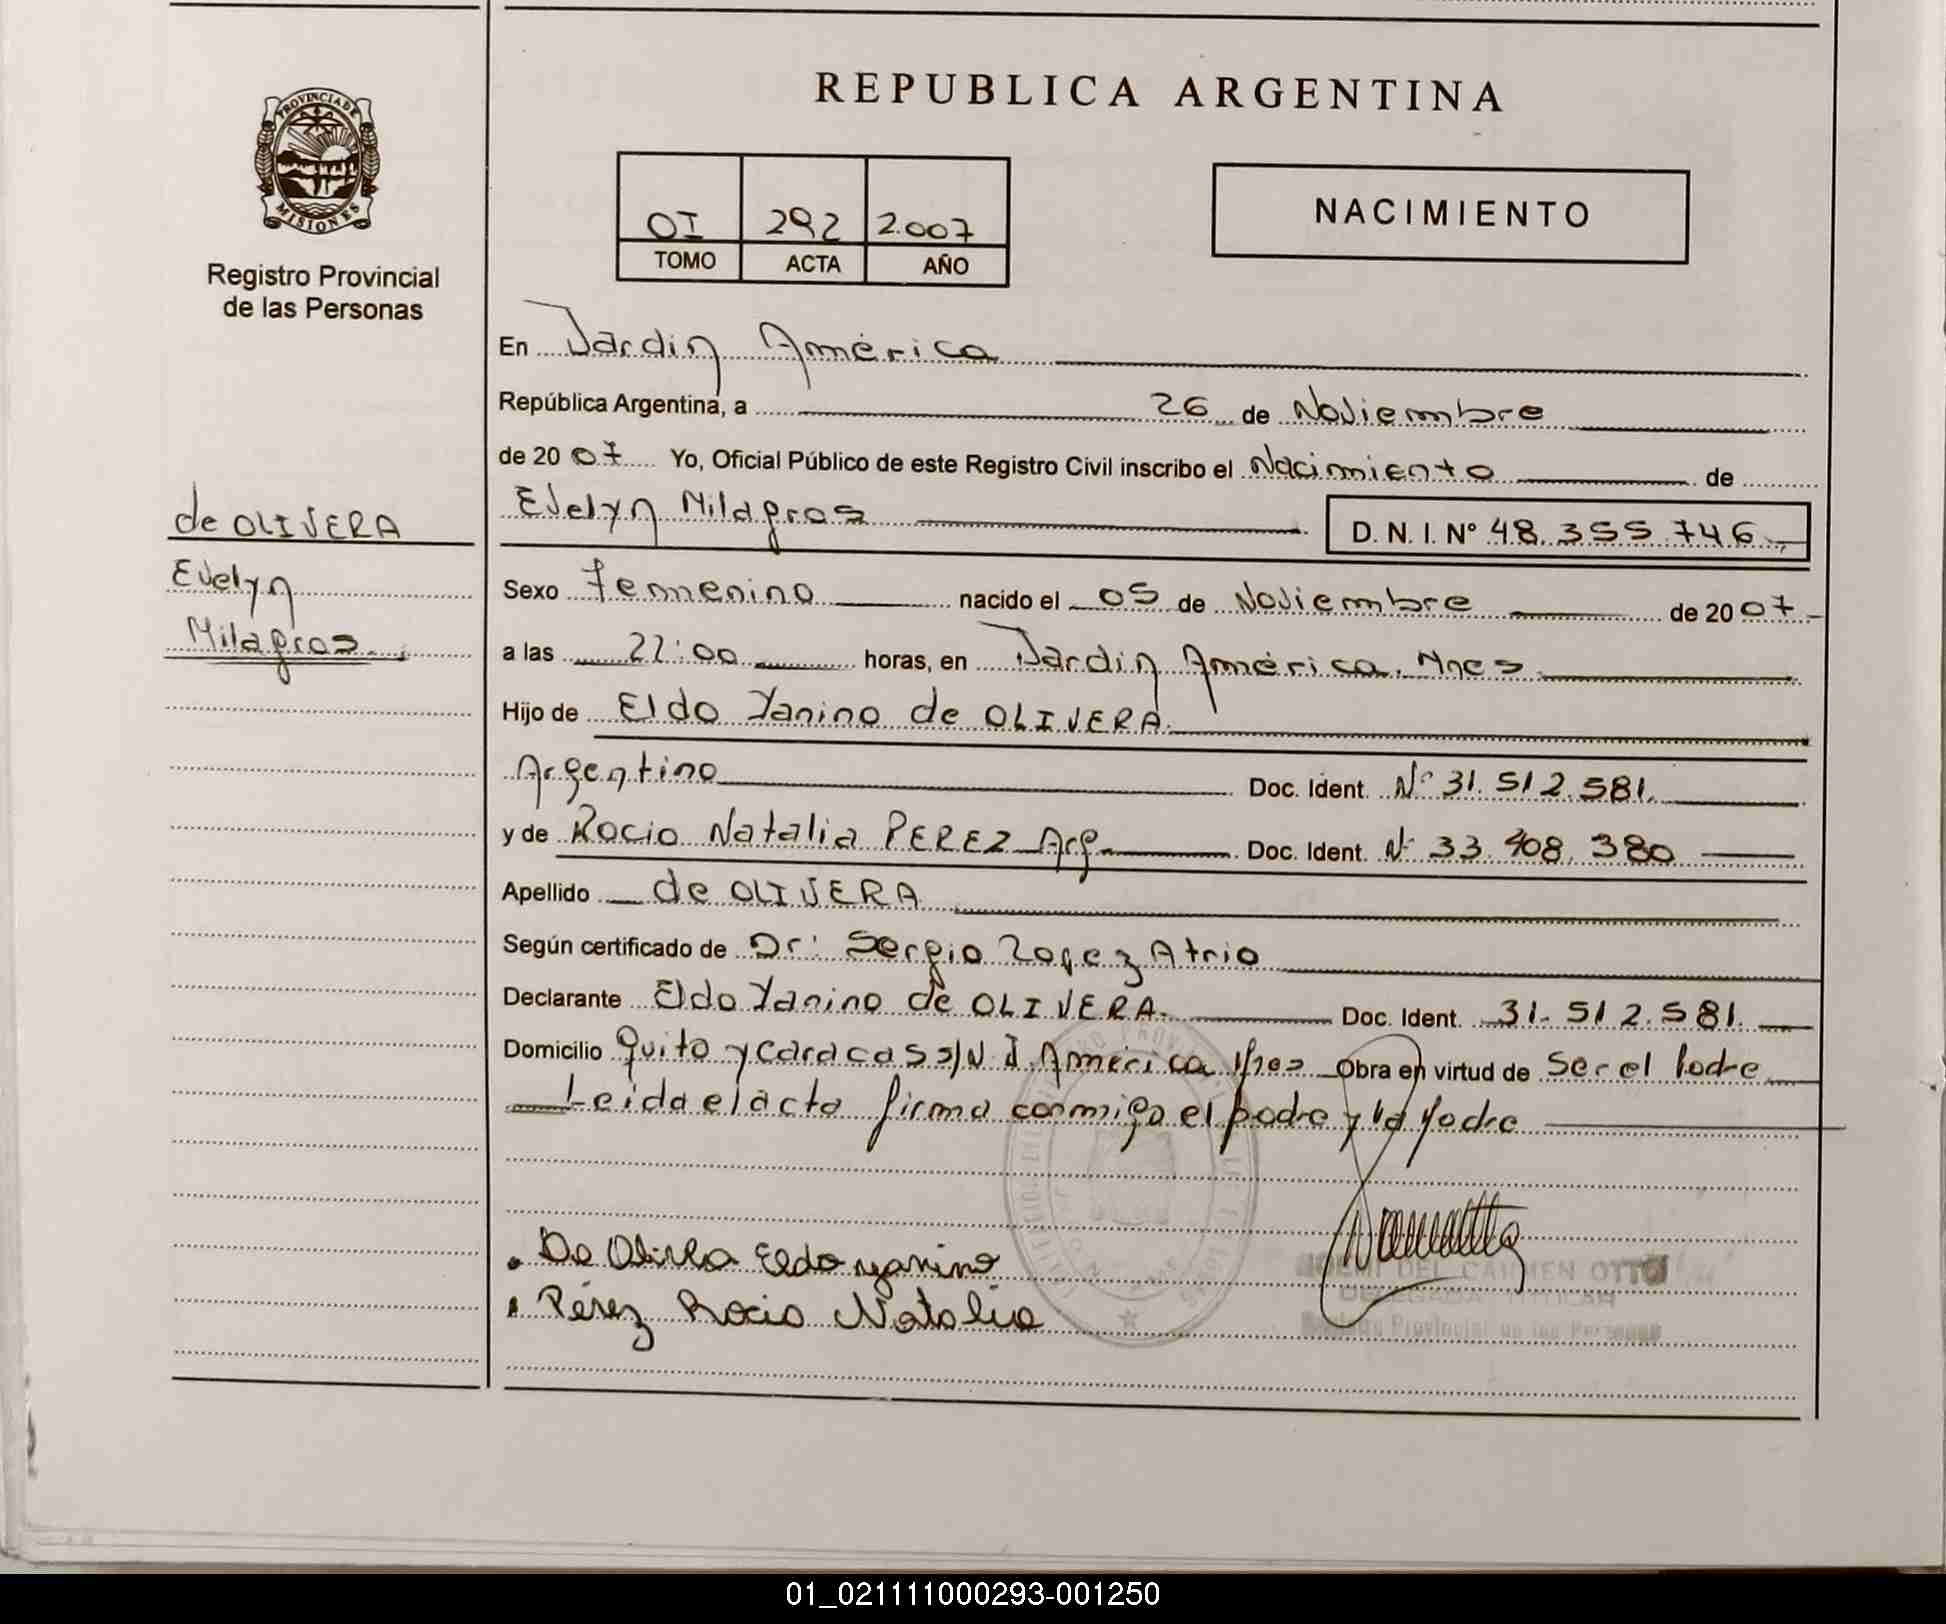 REPUBLICA ARGENTINA
PROVINCIA DE
MISIONES
Registro Provincial
de las Personas
OI 292 2.007
TOMO ACTA AÑO
NACIMIENTO
En Jardín América
República Argentina, a 26 de Noviembre
de 2007 Yo, Oficial Público de este Registro Civil inscribo el Nacimiento de
Evelyn Milagros D. N. I. Nº 48.355.746.-
de OLIVERA
Evelyn
Milagros.
Sexo femenino nacido el 05 de Noviembre de 2007.-
a las 22:00 horas, en Jardín América. Mnes
Hijo de Eldo Yanino de OLIVERA.
Argentino Doc. Ident. Nº 31.512.581.
y de Rocio Natalia PEREZ Arg. Doc. Ident. Nº 33.408.380
Apellido de OLIVERA
Según certificado de Dr: Sergio Lopez Atrio
Declarante Eldo Yanino de OLIVERA. Doc. Ident. 31.512.581.
Domicilio Quito y Caracas s/N J. América Mnes Obra en virtud de Ser el Padre
Leida el acta firma conmigo el padre y la Madre
De Olivera Eldo yanino
Pérez Rocio Natalia
NOEMI DEL CARMEN OTTO
DELEGADA TITULAR
Registro Provincial de las Personas
01_021111000293-001250